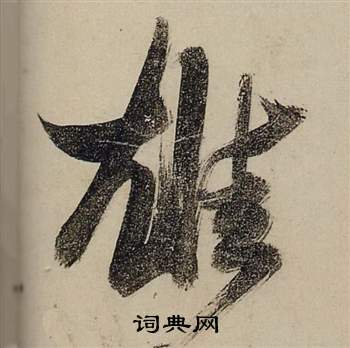 雄
词典网